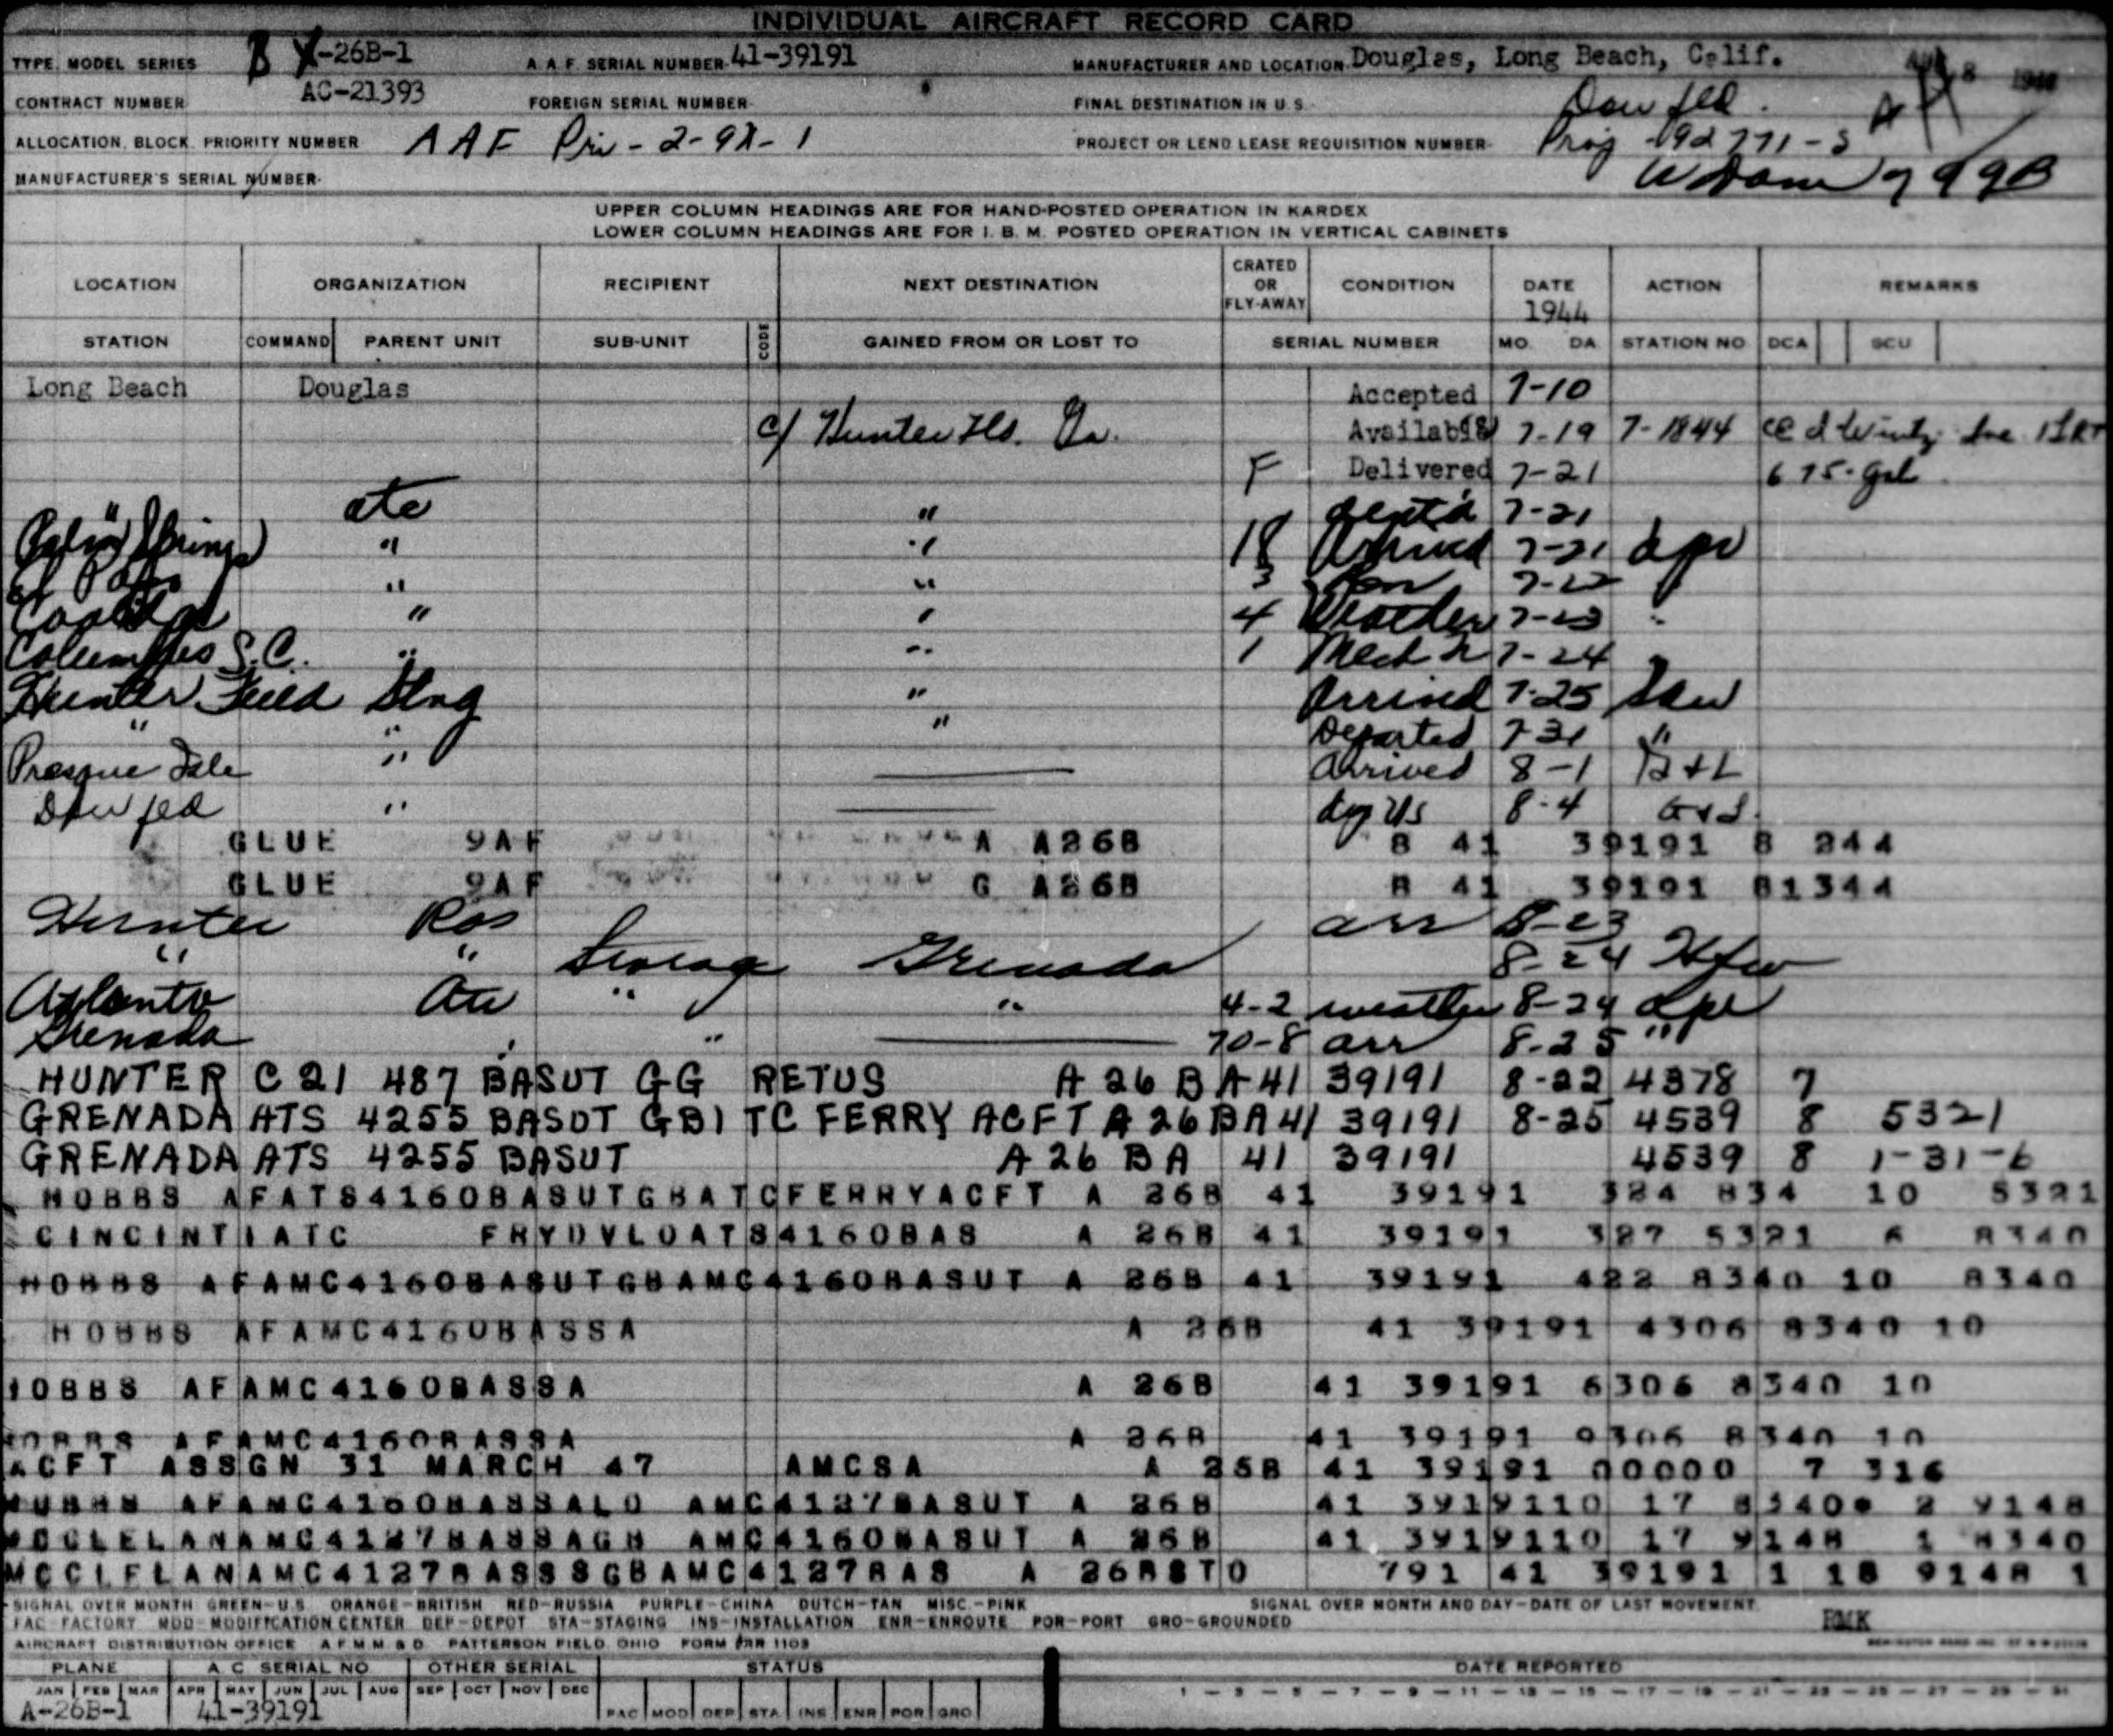 INDIVIDUAL AIRCRAFT RECORD CARD
TYPE, MODEL SERIES B -26B-1 A.A.F. SERIAL NUMBER 41-39191 MANUFACTURER AND LOCATION Douglas, Long Beach, Calif.
CONTRACT NUMBER AC-21393 FOREIGN SERIAL NUMBER FINAL DESTINATION IN U.S. Dow fld.
ALLOCATION, BLOCK, PRIORITY NUMBER AAF Pri-2-9X-1 PROJECT OR LEND LEASE REQUISITION NUMBER Proj 92771-S
MANUFACTURER'S SERIAL NUMBER
UPPER COLUMN HEADINGS ARE FOR HAND-POSTED OPERATION IN KARDEX
LOWER COLUMN HEADINGS ARE FOR I. B. M. POSTED OPERATION IN VERTICAL CABINETS
LOCATION ORGANIZATION RECIPIENT NEXT DESTINATION CRATED OR FLY-AWAY CONDITION DATE 1944 ACTION REMARKS
STATION COMMAND PARENT UNIT SUB-UNIT CODE GAINED FROM OR LOST TO SERIAL NUMBER MO. DA STATION NO DCA SCU
Long Beach Douglas Accepted 7-10
c/ Hunter Fld. Ga. Available 7-19 7-18-44
F Delivered 7-21 675-gal
" atc " 7-21
Palm Springs " " 18 Arrived 7-21
El Paso " " 3 7-22
" 4 Weather 7-23
Columbus S.C. " " 1 Mech 7-24
Hunter Field " Arrived 7-25
" " " Departed 7-31 "
Presque Isle " Arrived 8-1
Dow fld " 8-4
GLUE 9AF A A26B B 41 39191 8 244
GLUE 9AF G A26B B 41 39191 81344
Hunter arr 8-23
" " Grenada 8-24
Atlanta " " 4-2 weather 8-24
Grenada " 70-8 arr 8-25 "
HUNTER C 21 487 BASUT GG RETUS A 26 B A 41 39191 8-22 4378 7
GRENADA ATS 4255 BASUT GB1 TC FERRY ACFT A 26 BA 41 39191 8-25 4539 8 5321
GRENADA ATS 4255 BASUT A 26 BA 41 39191 4539 8 1-31-6
HOBBS AFATS4160BASUTGBATCFERRYACFT A 26B 41 39191 324 834 10 5321
CINCINTIATC FRYDVLOATS4160BAS A 26B 41 39191 327 5321 6 8340
HOBBS AFAMC4160BASUTGBAMC4160BASUT A 26B 41 39191 422 8340 10 8340
HOBBS AFAMC4160BASSA A 26B 41 39191 4306 8340 10
HOBBS AFAMC4160BASSA A 26B 41 39191 6306 8340 10
HOBBS AFAMC4160BASSA A 26B 41 39191 9306 8340 10
ACFT ASSGN 31 MARCH 47 AMCSA A 26B 41 39191 00000 7 316
HOBBS AFAMC4160BASSALO AMC4127BASUT A 26B 41 3919110 17 8340 2 9148
MCCLELANAMC4127BASSAGB AMC4160BASUT A 26B 41 3919110 17 9148 1 8340
MCCLELANAMC4127BASSSGBAMC4127BAS A 26BSTO 791 41 39191 1 18 9148 1
SIGNAL OVER MONTH GREEN-U.S. ORANGE-BRITISH RED-RUSSIA PURPLE-CHINA DUTCH-TAN MISC.-PINK SIGNAL OVER MONTH AND DAY-DATE OF LAST MOVEMENT
FAC-FACTORY MOD-MODIFICATION CENTER DEP-DEPOT STA-STAGING INS-INSTALLATION ENR-ENROUTE POR-PORT GRO-GROUNDED
AIRCRAFT DISTRIBUTION OFFICE A.F.M.M.&D. PATTERSON FIELD, OHIO FORM 1103
PLANE A C SERIAL NO OTHER SERIAL STATUS DATE REPORTED
JAN FEB MAR APR MAY JUN JUL AUG SEP OCT NOV DEC 1-3-5-7-9-11-13-15-17-19-21-23-25-27-29-31
A-26B-1 41-39191 FAC MOD DEP STA INS ENR POR GRO